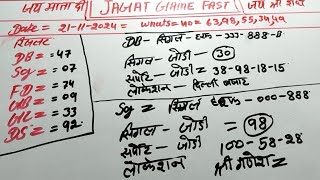 जय माता दी JAGHAT GHAME FAST जय श्री
Date = 21-11-2024 =
रिजल्ट
DB = 47
Sg = 07
FD = 74
GB = 09
GL = 33
DS = 92
DB - सिंगल - 333-888-
सिंगल - जोडी - 30
सपोट - जोडी = 38-98-18-15
लोकेशन - दिल्ली बाजार
Sg = सिंगल -000-888
सिंगल - जोडी = 98
सपोट - जोडी 100-58-28
लोकेशन श्री गणेश =